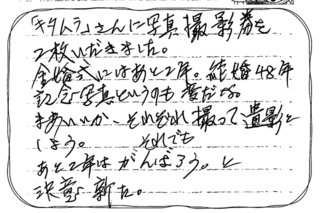 「キタムラ」さんに写真撮影券を
2枚いただきました。
金婚式にはあと2年。結婚48年
記念写真というのも変だな。
まあいいか、それぞれ撮って遺影と
しよう。 それでも
あと2年はがんばろう。と
決意新た。